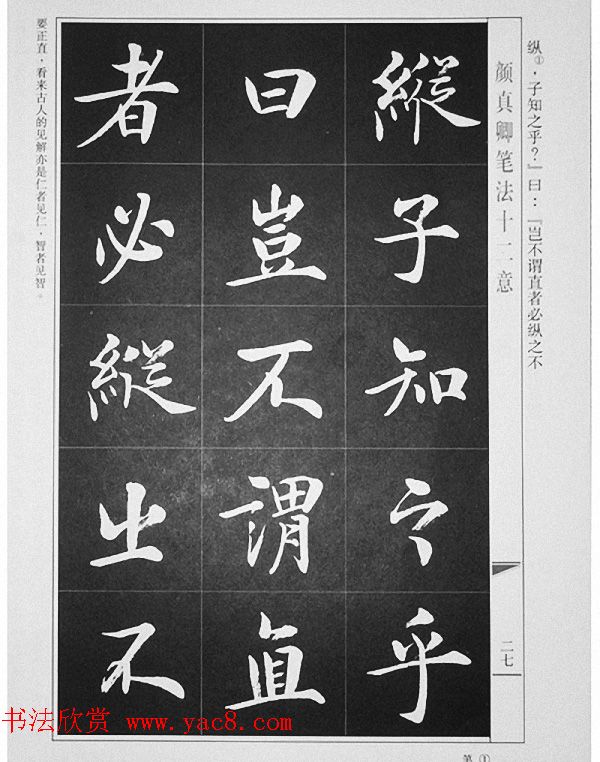 纵①，子知之乎？』曰：『岂不谓直者必纵之不
颜真卿笔法十二意
二七
縱子知之乎
曰豈不謂直
者必縱之不
要正直，看来古人的见解亦是仁者见仁，智者见智。
书法欣赏 www.yac8.com
第①